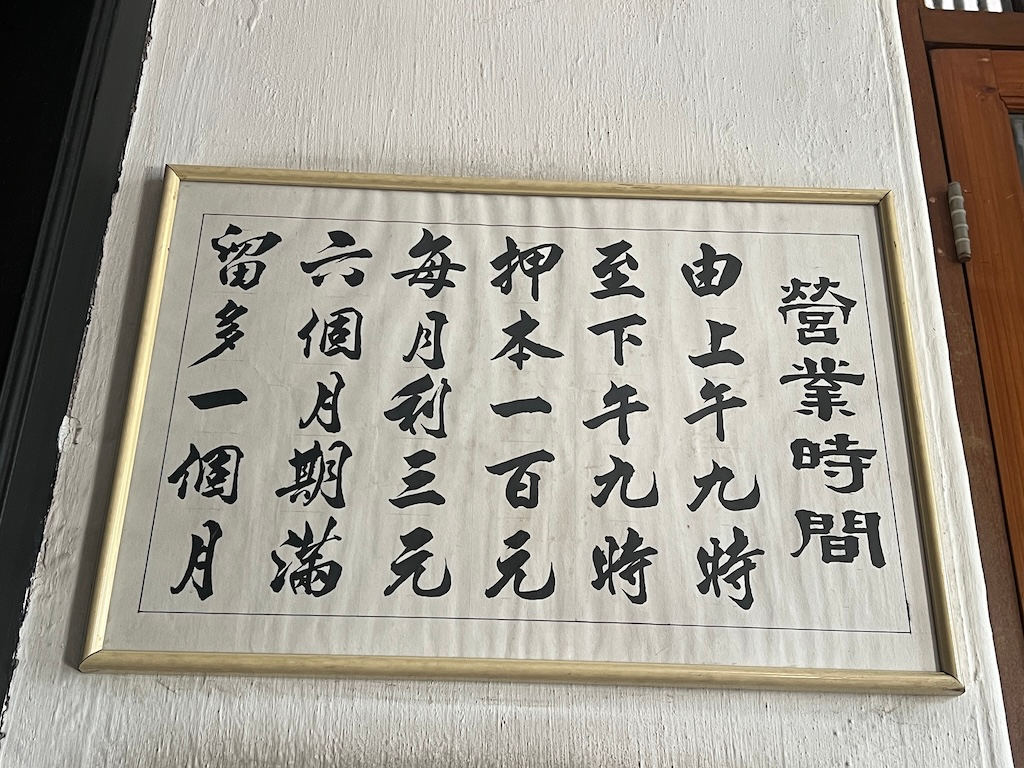 營業時間
由上午九時
至下午九時
押本一百元
每月利三元
六個月期滿
留多一個月